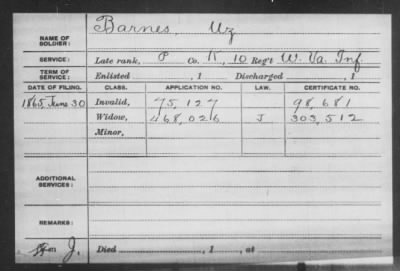 NAME OF SOLDIER: Barnes, Uz
SERVICE: Late rank, P Co. K, 10 Reg't W. Va. Inf.
TERM OF SERVICE: Enlisted , 1 Discharged , 1
DATE OF FILING. CLASS. APPLICATION NO. LAW. CERTIFICATE NO.
1865, June 30 Invalid, 75,127 98,681
Widow, 468,026 J 303,512
Minor,
ADDITIONAL SERVICES:
REMARKS:
J. Died , 1 , at